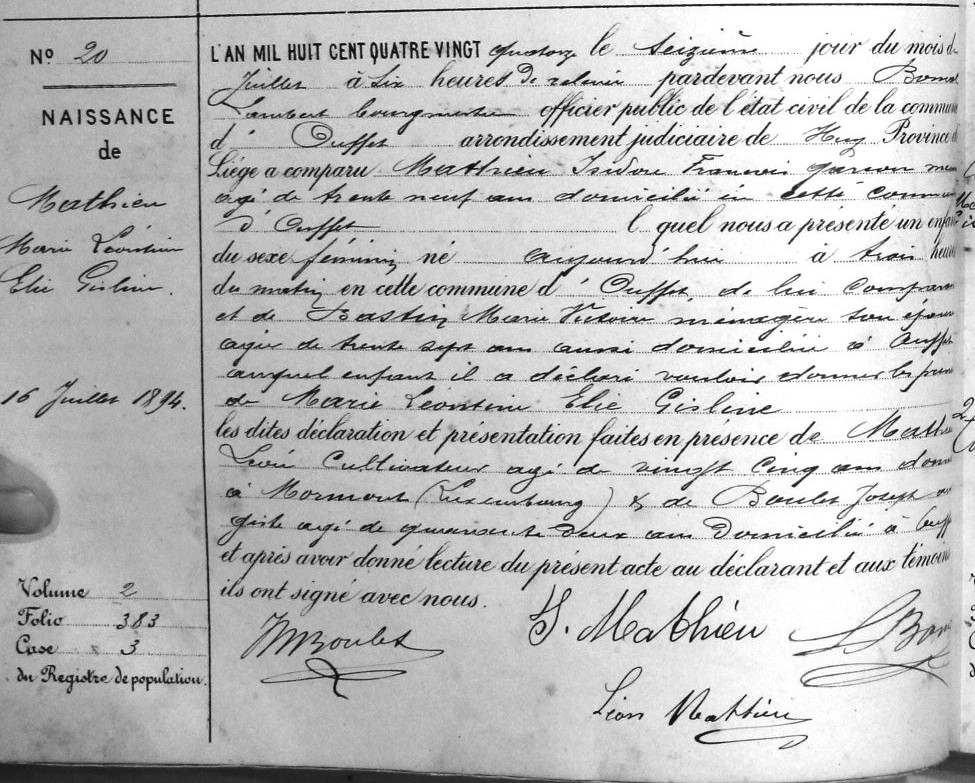 Nº 20
NAISSANCE
de
Mathieu
Marie Léontine
Elie Gisline.
16 Juillet 1894.
Volume 2
Folio 383
Case 3
du Registre de population.
L'AN MIL HUIT CENT QUATRE VINGT quatorze le seizième jour du mois de
Juillet à six heures de relevée pardevant nous Boma
Lambert bourgmestre officier public de l'état civil de la commune
d' Ouffet arrondissement judiciaire de Huy Province de
Liége a comparu Mathieu Isidore Francois garson meu
agé de trente neuf ans domicilié en cette commune
d'Ouffet l quel nous a présenté un enfant
du sexe féminin né aujourd'hui à trois heures
du matin en cette commune d'Ouffet, de lui comparant
et de Bastin Marie Victoire ménagère son épouse
agée de trente sept ans aussi domiciliée à Ouffet
auquel enfant il a déclaré vouloir donner les prénoms
de Marie Leontine Elie Gisline
les dites déclaration et présentation faites en présence de Mathieu
Léon Cultivateur agé de vingt cinq ans dom
à Mormont (Luxembourg) & de Boulet Joseph
giste agé de quarante deux ans Domicilié à Ouff
et après avoir donné lecture du présent acte au déclarant et aux témoins
ils ont signé avec nous.
JMBoulet
I. Mathieu
L Bom
Léon Mathieu